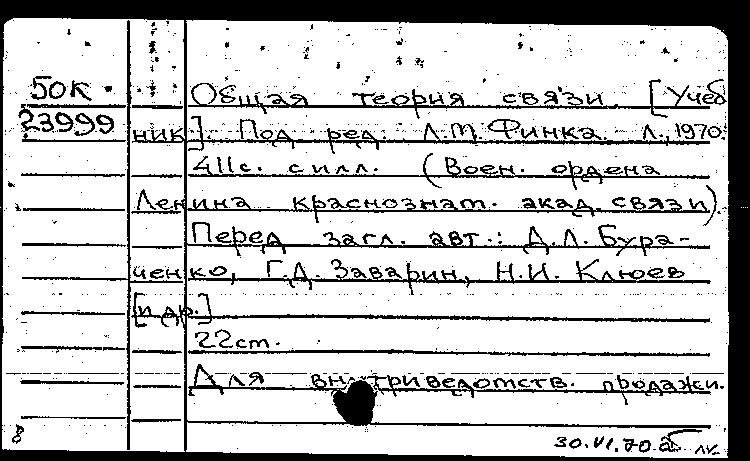 50к Общая теория связи. [Учеб
23999 ник]. Под ред. Л.М. Финка. – Л., 1970.
411с. с илл. (Воен. ордена
Ленина краснознам. акад. связи).
Перед загл. авт.: Д.Л. Бура-
ченко, Г.Д. Заварин, Н.И. Клюев
[и др.]
22см.
Для внутриведомств. продажи.
8 30.VI.70